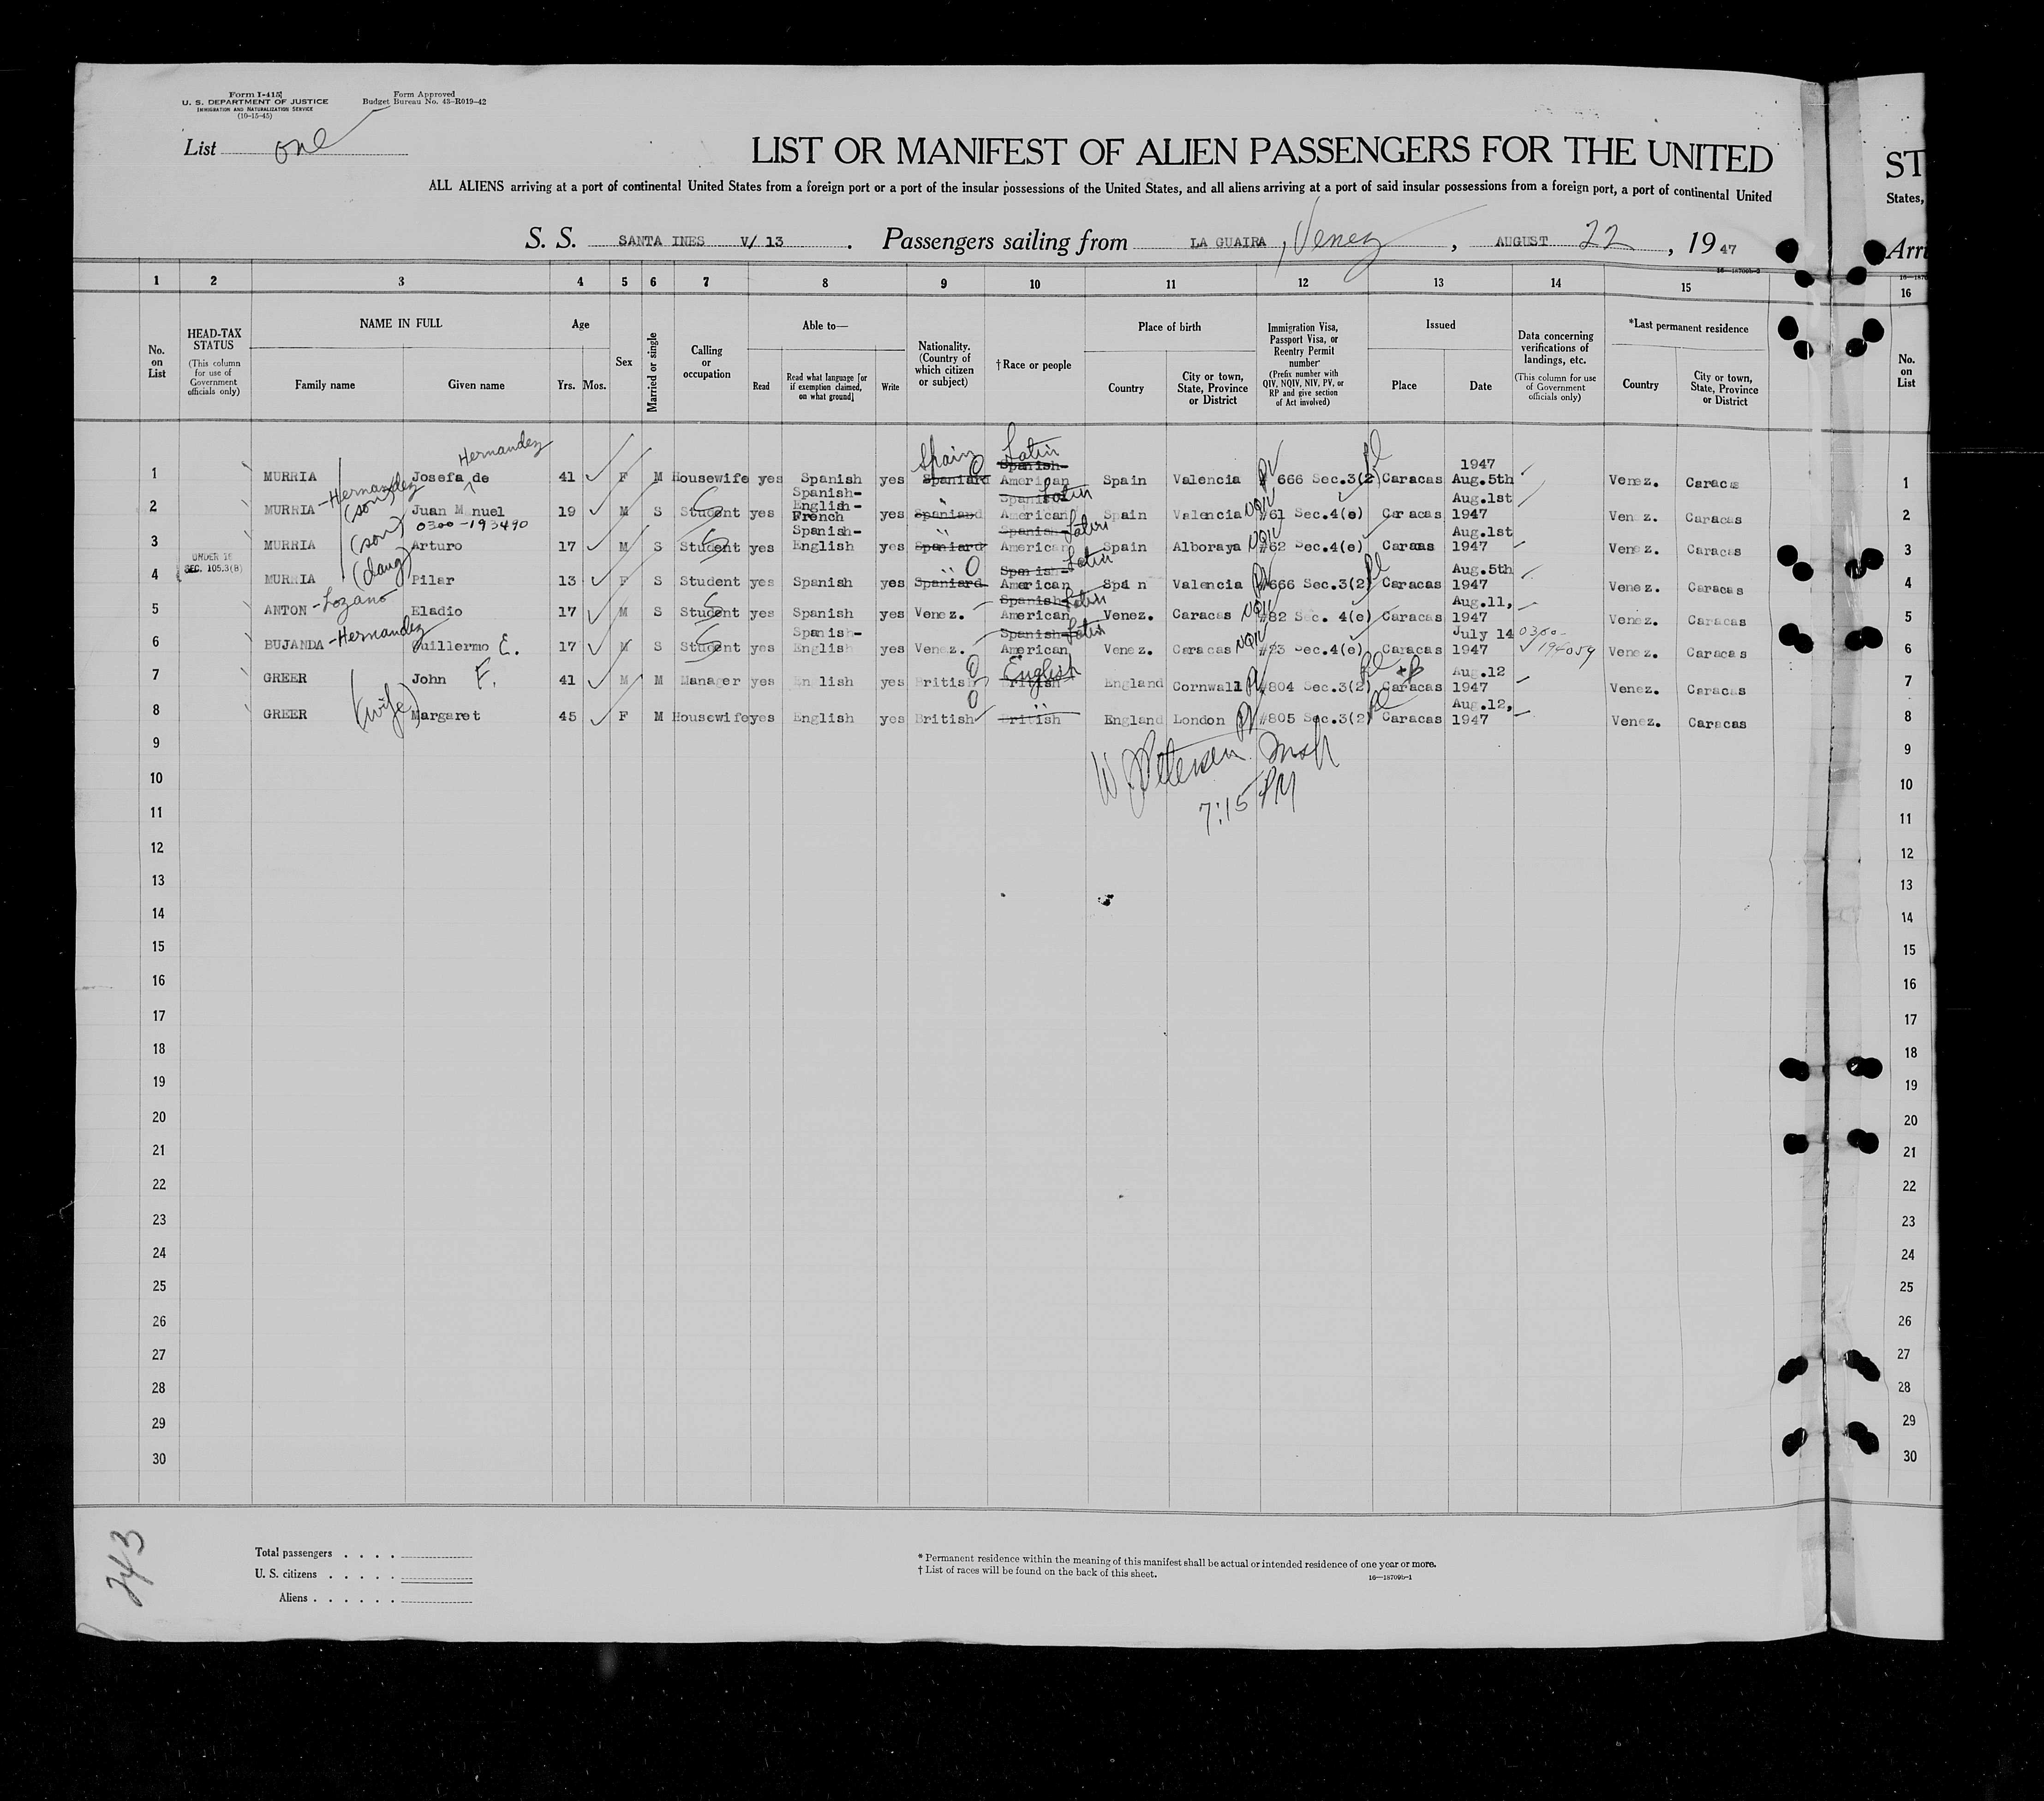 Form I-415
U. S. DEPARTMENT OF JUSTICE
IMMIGRATION AND NATURALIZATION SERVICE
(10-15-45)
Form Approved
Budget Bureau No. 43-R019-42
List one
LIST OR MANIFEST OF ALIEN PASSENGERS FOR THE UNITED
ST
ALL ALIENS arriving at a port of continental United States from a foreign port or a port of the insular possessions of the United States, and all aliens arriving at a port of said insular possessions from a foreign port, a port of continental United
States,
S. S. SANTA INES V/ 13 . Passengers sailing from LA GUAIRA, Venez , AUGUST 22 , 19 47
Arri
1 2 3 4 5 6 7 8 9 10 11 12 13 14 15 16
No. on List
HEAD-TAX STATUS
(This column for use of Government officials only)
NAME IN FULL
Family name Given name
Age
Yrs. Mos.
Sex
Married or single
Calling or occupation
Able to—
Read
Read what language [or if exemption claimed, on what ground]
Write
Nationality. (Country of which citizen or subject)
† Race or people
Place of birth
Country
City or town, State, Province or District
Immigration Visa, Passport Visa, or Reentry Permit number
(Prefix number with QIV, NQIV, NIV, PV, or RP and give section of Act involved)
Issued
Place Date
Data concerning verifications of landings, etc.
(This column for use of Government officials only)
*Last permanent residence
Country
City or town, State, Province or District
No. on List
Hernandez Spain Latin
1 MURRIA Josefa de 41 F M Housewife yes Spanish yes Spaniard Spanish-American Spain Valencia PV 666 Sec.3(2) Caracas 1947 Aug.5th Venez. Caracas 1
2 MURRIA -Hernandez (son) Juan Manuel 19 M S Student yes Spanish-English-French yes Spaniard " Spanish American Latin Spain Valencia NQIV #61 Sec.4(e) Caracas Aug.1st 1947 Venez. Caracas 2
0300-193490
3 MURRIA (son) Arturo 17 M S Student yes Spanish-English yes Spaniard " Spanish-American Latin Spain Alboraya NQIV #62 Sec.4(e) Caraas Aug.1st 1947 Venez. Caracas 3
UNDER 16
SEC. 105.3(B)
4 MURRIA (daug) Pilar 13 F S Student yes Spanish yes Spaniard " Spanish-American Latin Spain Valencia PV #666 Sec.3(2) Caracas Aug.5th 1947 Venez. Caracas 4
5 ANTON -Lozano Eladio 17 M S Student yes Spanish yes Venez. Spanish-American Latin Venez. Caracas NQIV #82 Sec. 4(e) Caracas Aug.11, 1947 Venez. Caracas 5
6 BUJANDA -Hernandez Guillermo E. 17 M S Student yes Spanish-English yes Venez. Spanish-American Latin Venez. Caracas NQIV Sec.4(e) Caracas July 14 1947 0300-194059 Venez. Caracas 6
7 GREER John F. 41 M M Manager yes English yes British British English England Cornwall PV #804 Sec.3(2) Caracas Aug.12 1947 Venez. Caracas 7
8 GREER (wife) Margaret 45 F M Housewife yes English yes British British " England London PV #805 Sec.3(2) Caracas Aug.12, 1947 Venez. Caracas 8
9 9
7:15 PM
10 10
11 11
12 12
13 13
14 14
15 15
16 16
17 17
18 18
19 19
20 20
21 21
22 22
23 23
24 24
25 25
26 26
27 27
28 28
29 29
30 30
243
Total passengers . . . .
U. S. citizens . . . . .
Aliens . . . . . .
* Permanent residence within the meaning of this manifest shall be actual or intended residence of one year or more.
† List of races will be found on the back of this sheet.
16—18709b-1